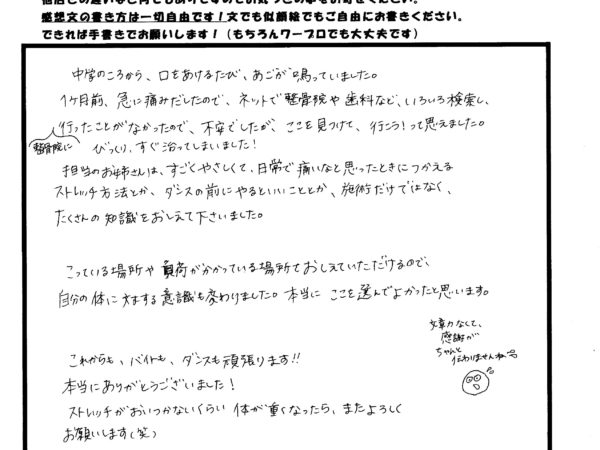 感想文の書き方は一切自由です！文でも似顔絵でもご自由にお書きください。
できれば手書きでお願いします！（もちろんワープロでも大丈夫です）
中学のころから、口をあけるたび、あごが鳴っていました。
1ヶ月前、急に痛みだしたので、ネットで整骨院や歯科など、いろいろ検索し、
行ったことがなかったので、不安でしたが、ここを見つけて、行こう！って思えました。
整骨院に
びっくり、すぐ治ってしまいました！
担当のお姉さんは、すごくやさしくて、日常で痛いなと思ったときにつかえる
ストレッチ方法とか、ダンスの前にやるといいこととか、施術だけではなく、
たくさんの知識をおしえて下さいました。
こっている場所や負荷がかかっている場所ておしえていただけるので、
自分の体に対する意識も変わりました。本当にここを選んでよかったと思います。
文章力なくて、
感謝が
ちゃんと
伝わりませんね
これからも、バイトも、ダンスも頑張ります!!
本当にありがとうございました！
ストレッチがおいつかないくらい体が重くなったら、またよろしく
お願いします(笑)